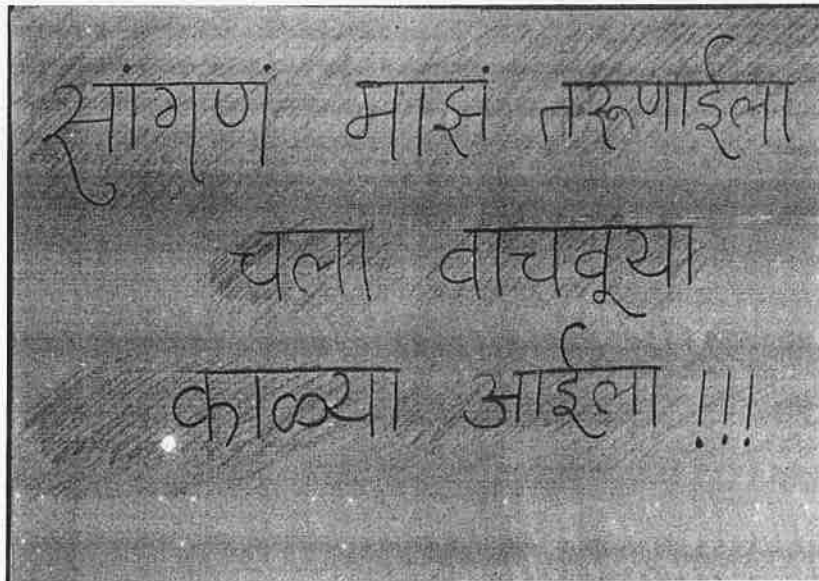 सांगणं माझं तरूणाईला
चला वाचवूया
काळ्या आईला !!!